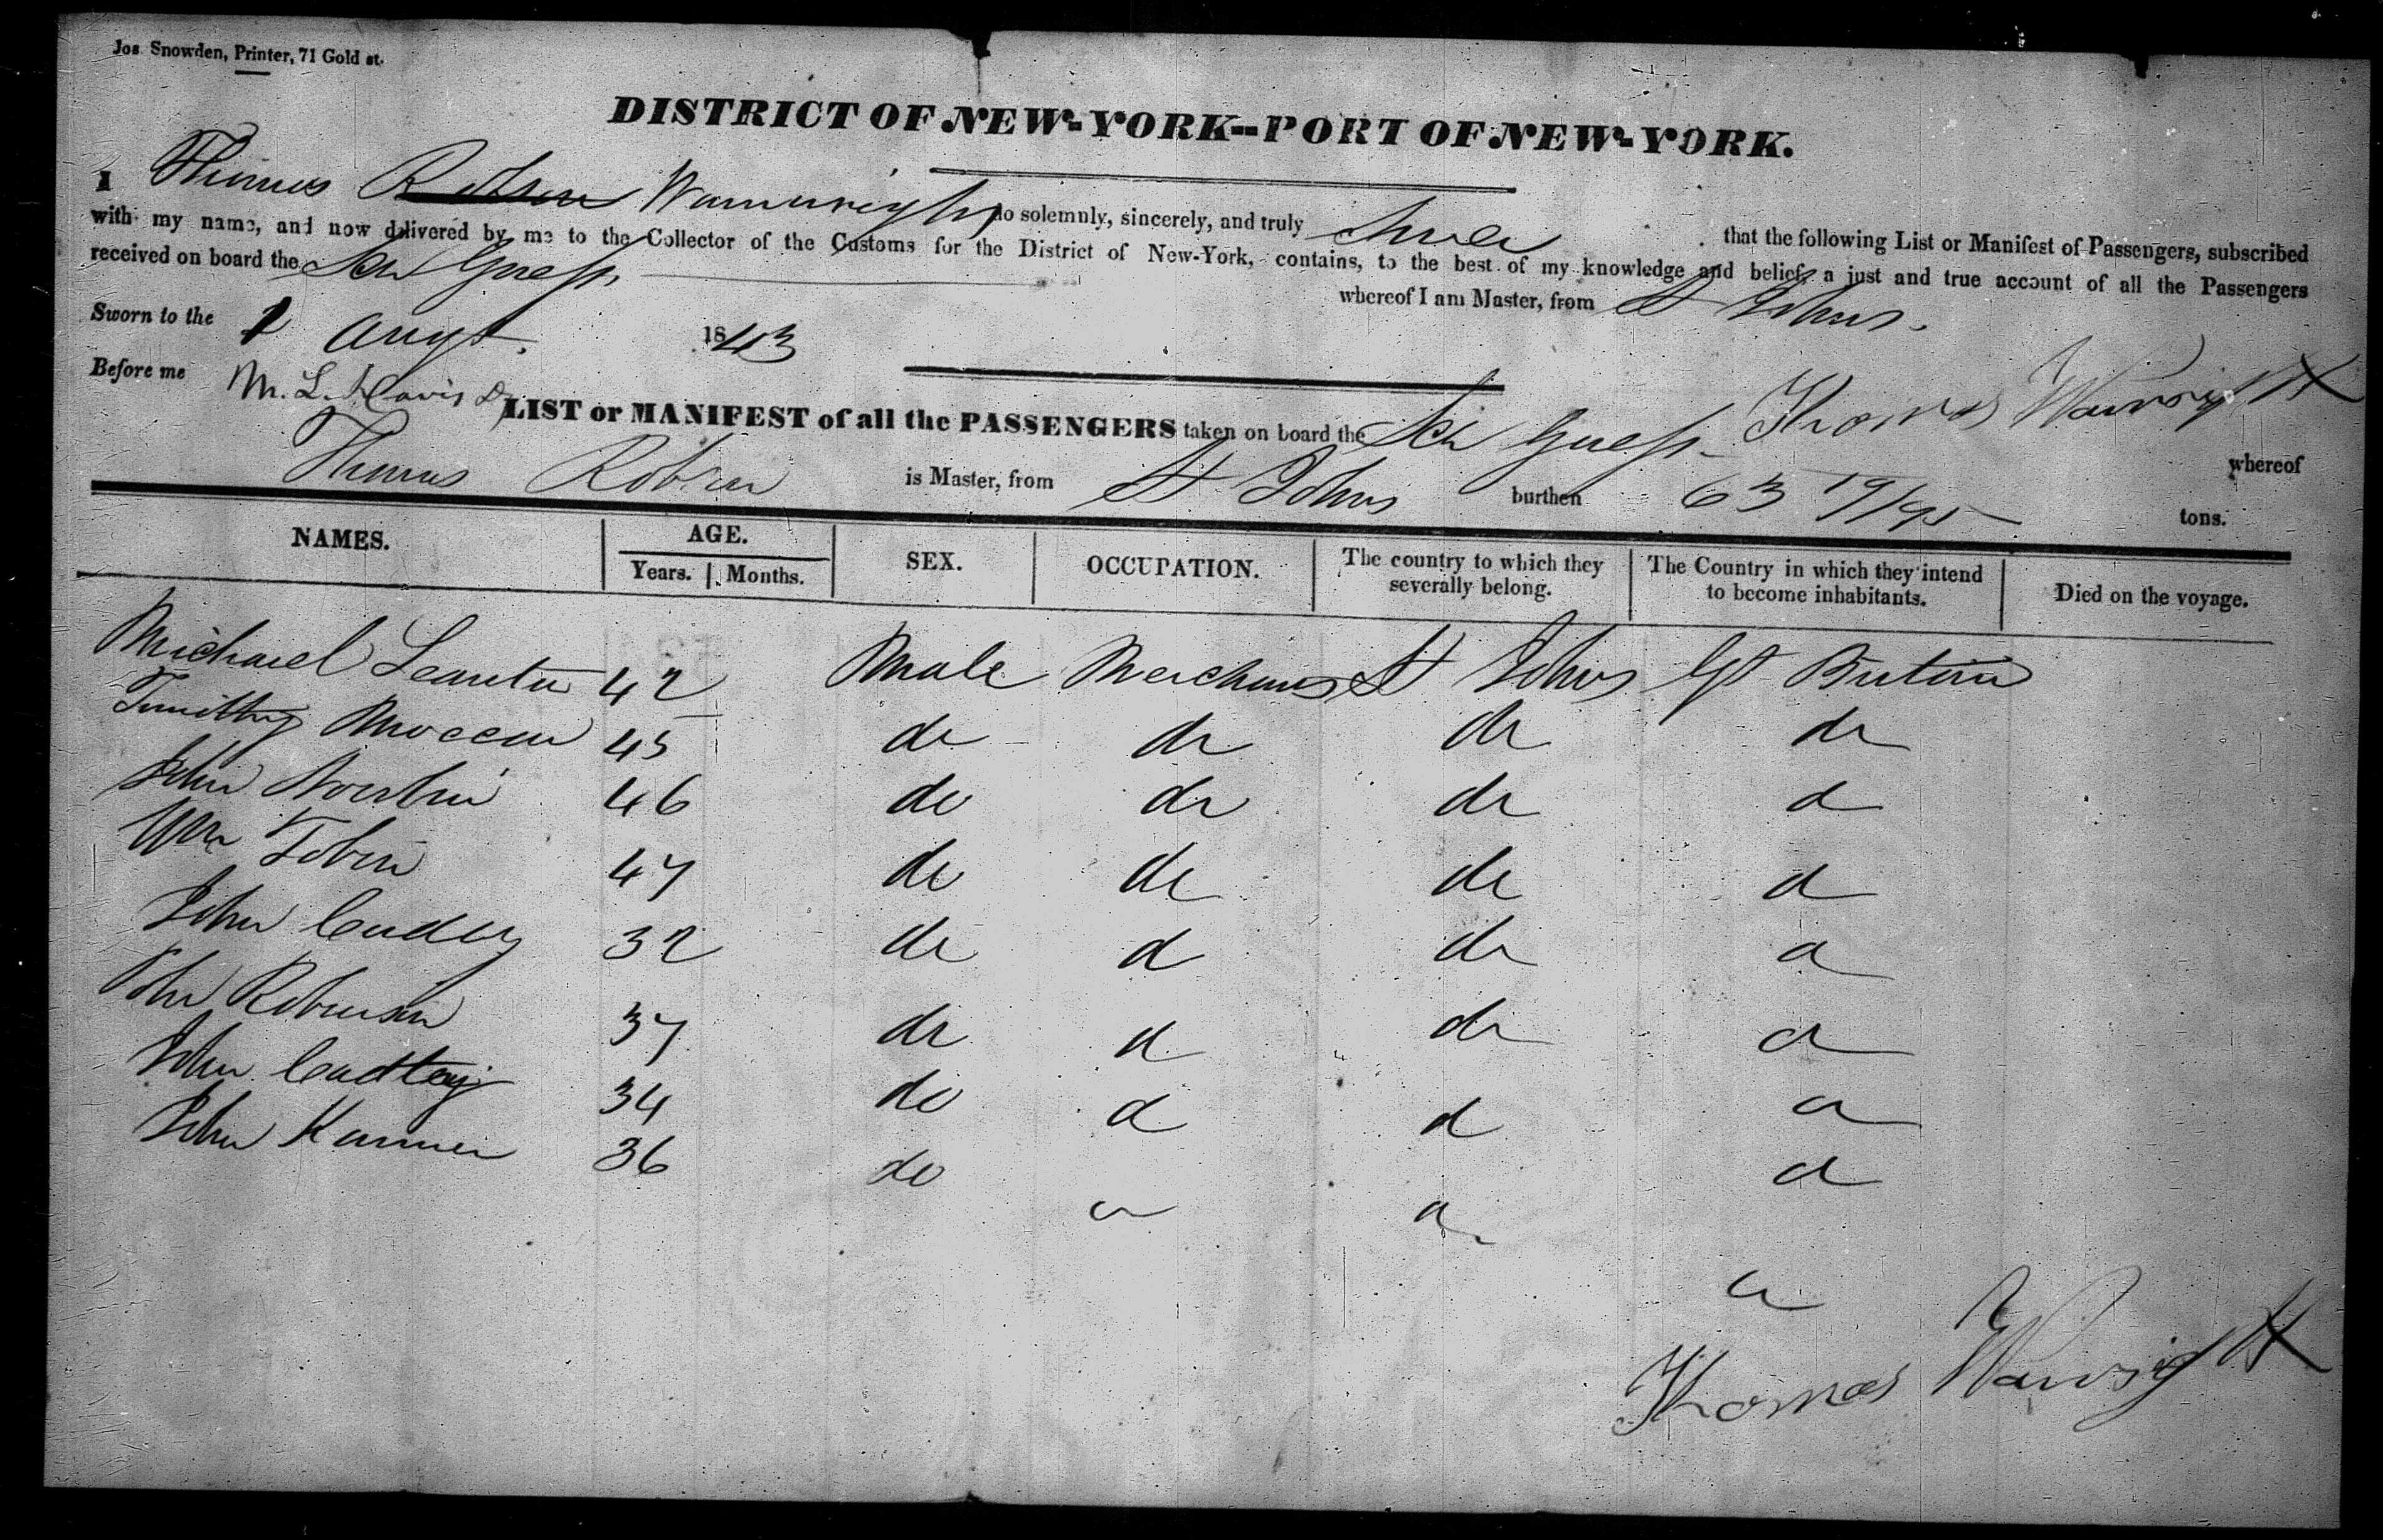 Jos Snowden, Printer, 71 Gold st.
DISTRICT OF NEW-YORK--PORT OF NEW-YORK.
I Thomas Robson Wainwright do solemnly, sincerely, and truly Swear that the following List or Manifest of Passengers, subscribed
with my name, and now delivered by me to the Collector of the Customs for the District of New-York, contains, to the best of my knowledge and belief, a just and true account of all the Passengers
received on board the Sch Guess whereof I am Master, from St Johns.
Sworn to the 1 Augt. 1843
Before me M. L. Davis Thomas Wainwright
LIST or MANIFEST of all the PASSENGERS taken on board the Sch Guess whereof
Thomas Robson is Master, from St Johns burthen 63 19/95 tons.
NAMES. AGE. SEX. OCCUPATION. The country to which they severally belong. The Country in which they intend to become inhabitants. Died on the voyage.
Years. Months.
Michael 42 Male Merchant St Johns Gt Britain
Timothy 45 do do do do
John 46 do do do d
Wm Tobin 47 do do do d
John 32 do d do d
John Robinson 37 do d do d
John 34 do d d d
John 36 do d d d
d
Thomas Wainwright